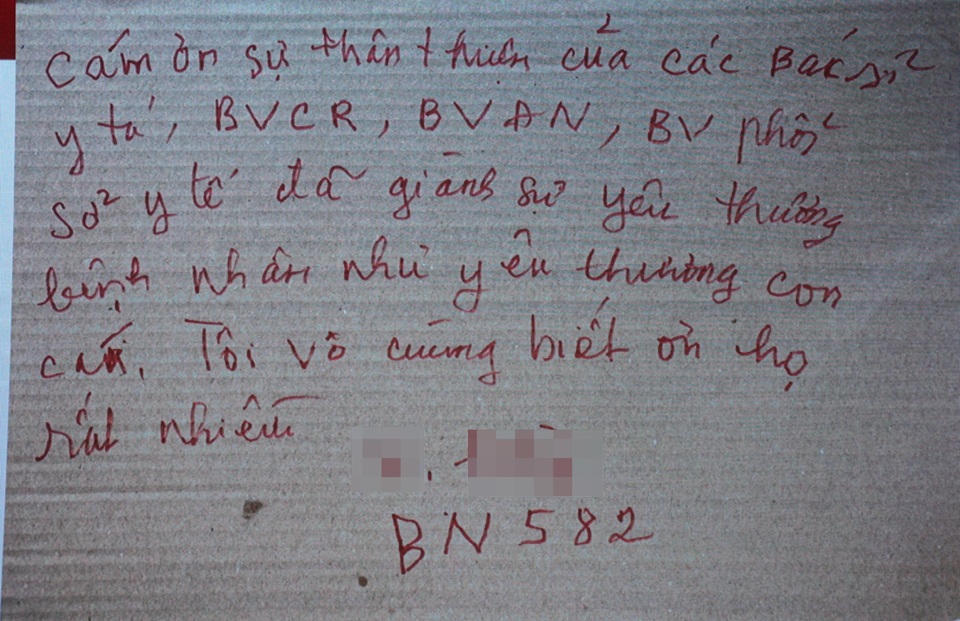 Cám ơn sự thân thiện của các Bác sĩ
y tá, BVCR, BVAN, BV phổi
sở y tế đã giành sự yêu thương
bệnh nhân như yêu thương con
cái. Tôi vô cùng biết ơn họ
rất nhiều
BN 582